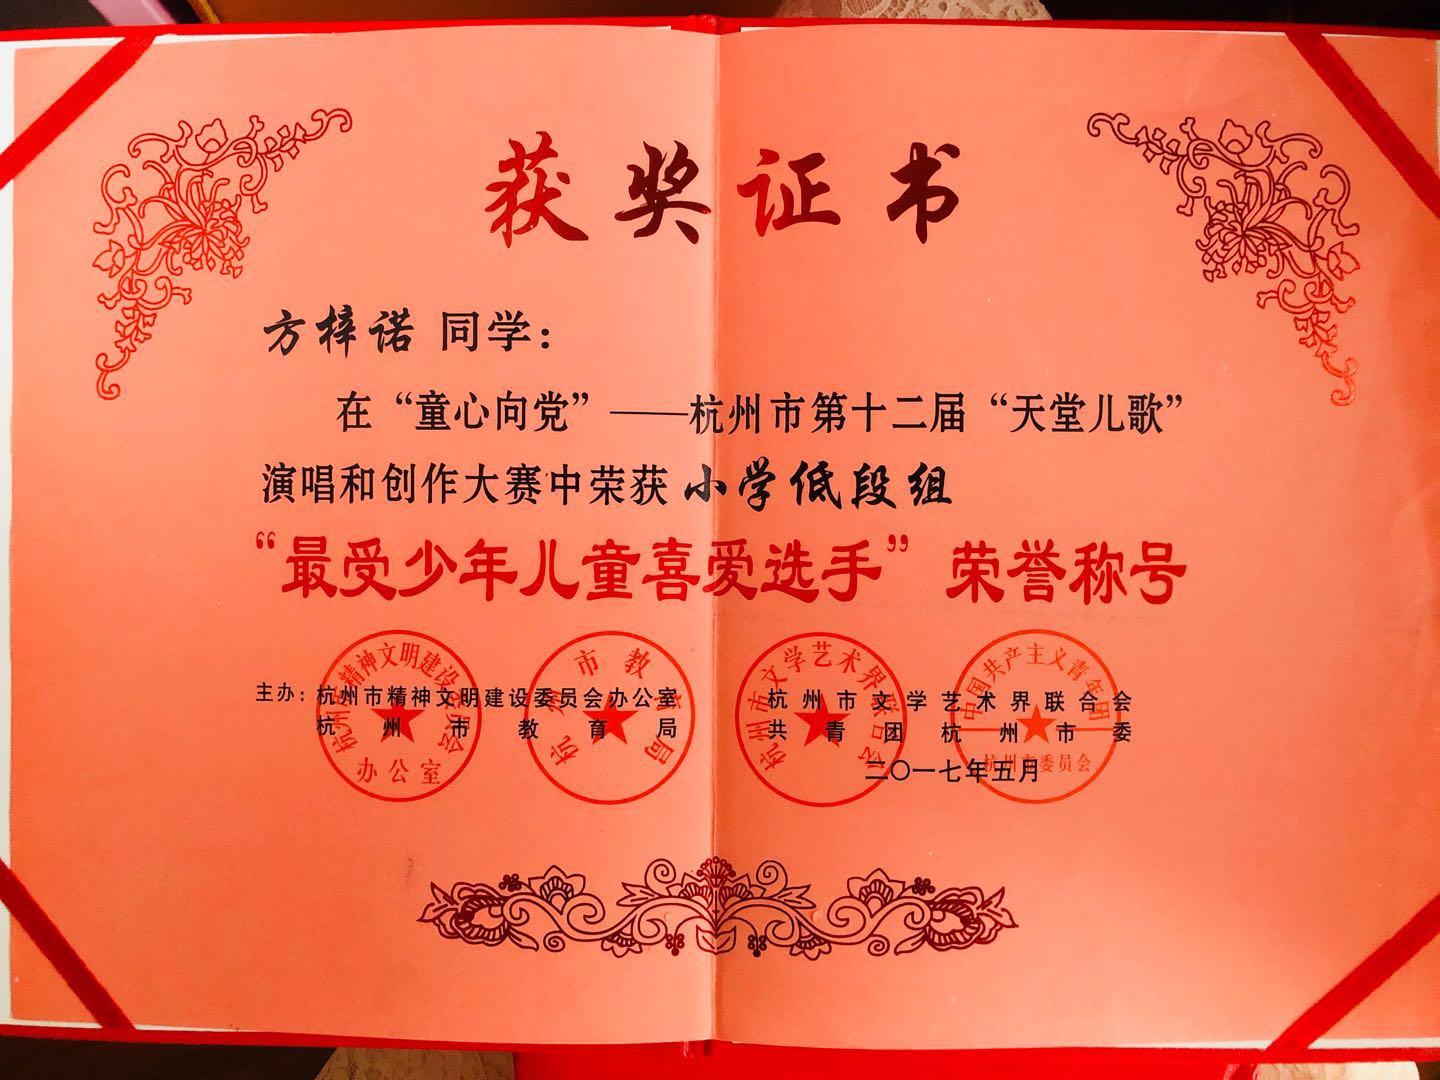 获奖证书
方梓诺 同学：
在“童心向党”——杭州市第十二届“天堂儿歌”
演唱和创作大赛中荣获 小学低段组
“最受少年儿童喜爱选手” 荣誉称号
主办：杭州市精神文明建设委员会办公室 杭州市文学艺术界联合会
杭州市教育局 共青团杭州市委
二〇一七年五月
杭州市精神文明建设委员会
办公室
杭州市教育局
杭州市文学艺术界联合会
中国共产主义青年团
杭州市委员会